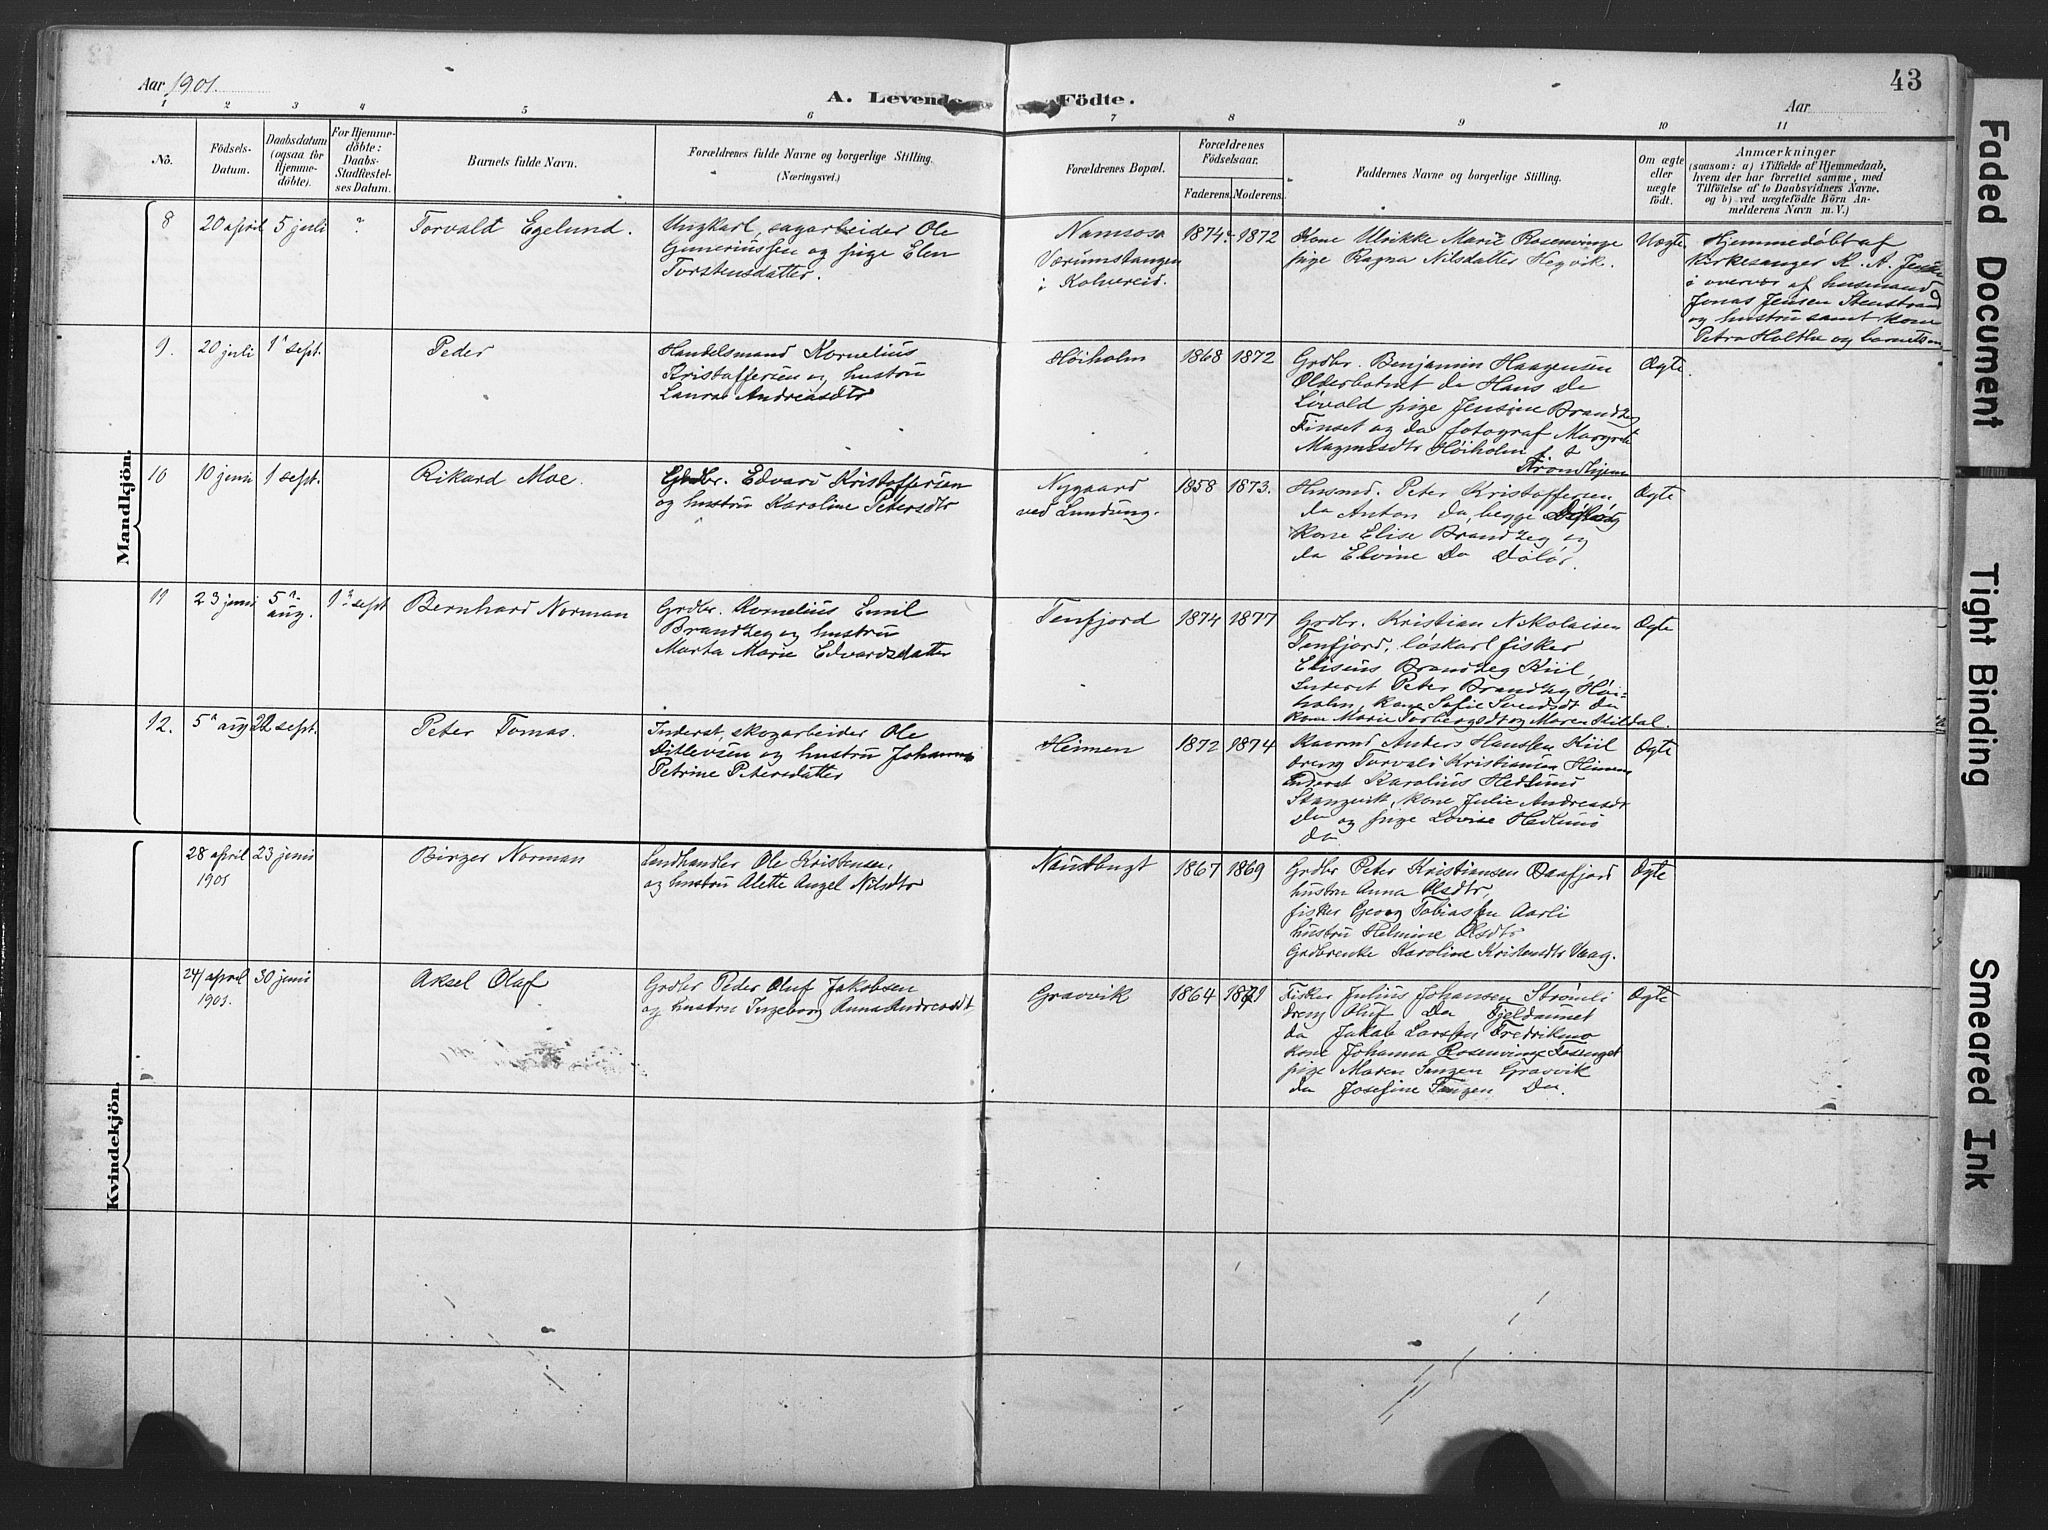 Aar 1901.
A. Levende Födte.
Aar
43
1 2 3 4 5 6 7 8 9 10 11
No.
Födsels-
Datum.
Daabsdatum
(ogsaa for
Hjemme-
döbte).
For Hjemme-
döbte:
Daabs-
Stadfæstel-
ses Datum.
Barnets fulde Navn.
Forældrenes fulde Navne og borgerlige Stilling.
(Næringsvei.)
Forældrenes Bopæl.
Forældrenes
Födselsaar.
Faderens. Moderens.
Faddernes Navne og borgerlige Stilling.
Om ægte
eller
uægte
födt.
Anmærkninger
(saasom: a) i Tilfælde af Hjemmedaab,
hvem der har forrettet samme, med
Tilföielse af to Daabsvidners Navne,
og b) ved uægtefödte Börn An-
melderens Navn m. V.)
Mandkjön.
8 20 april 5 juli ? Torvald Egelund.
Ungkarl, sagarbeider Ole
Guneriussen og pige Elen
Torstensdatter.
Namsos
Værumstangen
i Kolvereid.
1874 1872
Kone Ulrikke Marie Rosenvinge
pige Ragna Nilsdatter Hegvik.
Uægte.
Hjemmedøbt af
Kirkesanger K. A. Jensen
i overvær af husmand
Jonas Jensen Stenstrand
og hustru samt kone
Petra Holthe og barnets
9. 20 juli 1 sept. Peder
Handelsmand Kornelius
Kristoffersen og hustru
Laura Andreasdtr
Høiholm
1868 1872
Grdbr. Benjamin Haagensen
Olderbotnet da Hans do
Løvold pige Jensine Brandzeg
Finset og da fotograf Margret
Magnusdtr Høiholm
Trondhjem
Ægte.
10 10 juni 1 sept. Rikard Moe.
Grdbr. Edvard Kristoffersen
og hustru Karoline Petersdtr
Nygaard
ved Lundung.
1858 1873.
Husmd. Peter Kristoffersen,
da Anton do, begge
kone Elise Brandzeg og
da Elvine Do Dølør.
Ægte
11 23 juni 5 aug. 1 sept Bernhard Norman
Grdbr. Kornelius Emil
Brandzeg og hustru
Marta Marie Edvardsdatter
Tenfjord
1874 1877
Grdbr. Kristian Nikolaisen
Tenfjord, løskarl fisker
Eliseus Brandzeg Kiil,
Inderst Peter Brandzeg Høi-
holm, kone Sofie Svendsdt Do
kone Marie Torbergsdt og Maren Skildal.
Ægte
12. 5 aug 22 sept. Peter Tomas.
Inderst, skogarbeider Ole
Ditlevsen og hustru Johanna
Petrine Petersdatter
Heimen
1872 1874
Kaarmd Anders Hanssen Kiil
dreng Torvald Kristiansen Heimen
Inderst Karolius Hedlund
Stangvik, kone Julie Andreasdt
Do og pige Lovise Hedlund
do
Ægte
Kvindekjön.
28 april
1901
23 juni Birger Norman
Landhandler Ole Kristensen,
og hustru Alette Angel Nilsdtr
Nautbugt
1867 1869
Grdbr Peter Kristiansen Daafjord
hustru Anna Olsdtr,
fisker Georg Tobiassen Aarli
hustru Helmine Olsdtr
Grdbrenke Karoline Kristendtr Vaag.
Ægte
24/ april
1901.
30 juni Aksel Olaf
Grdbr Peder Oluf Jakobsen
og hustru Ingeborg Anna Andreasdt
Gravvik
1864 1871
Fisker Julius Johansen Strømli
dreng Oluf Do Fjeldannet
da Jakob Larssen Fredrikmo
kone Johanna Rosenvinge Fosenget
pige Maren Tangen Gravvik
da Josefine Tangen Do.
Ægte
Faded Document
Tight Binding
Smeared Ink